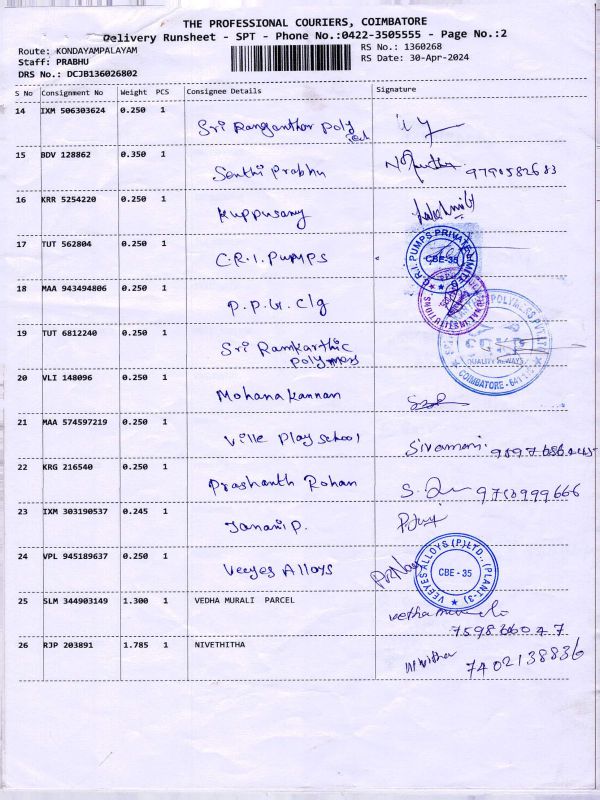 THE PROFESSIONAL COURIERS, COIMBATORE
Delivery Runsheet - SPT - Phone No.:0422-3505555 - Page No.:2
Route: KONDAYAMPALAYAM
RS No.: 1360268
Staff: PRABHU
RS Date: 30-Apr-2024
DRS No.: DCJB136026802
S No Consignment No Weight PCS Consignee Details Signature
14 IXM 506303624 0.250 1 Sri Ranganthar Poly
15 BDV 128862 0.350 1 Senthi Prabhu 9790582683
16 KRR 5254220 0.250 1 Kuppusamy
17 TUT 562804 0.250 1 C.R.I. PUMPS
C.R.I. PUMPS PRIVATE LIMITED
CBE-35
18 MAA 943494806 0.250 1 P.P.G. Clg
19 TUT 6812240 0.250 1 Sri Ramkarthic
Polymers
POLYMERS PVT LTD
QUALITY ALWAYS
COIMBATORE - 641
20 VLI 148096 0.250 1 Mohanakannan
21 MAA 574597219 0.250 1 Ville Play School Sivamani.
22 KRG 216540 0.250 1 Prashanth Rohan 9710999666
23 IXM 303190537 0.245 1 Janani P.
24 VPL 945189637 0.250 1 Veeyes Alloys
VEEYES ALLOYS (P) LTD., (PLANT-3)
CBE - 35
25 SLM 344903149 1.300 1 VEDHA MURALI PARCEL
26 RJP 203891 1.785 1 NIVETHITHA 7402138836